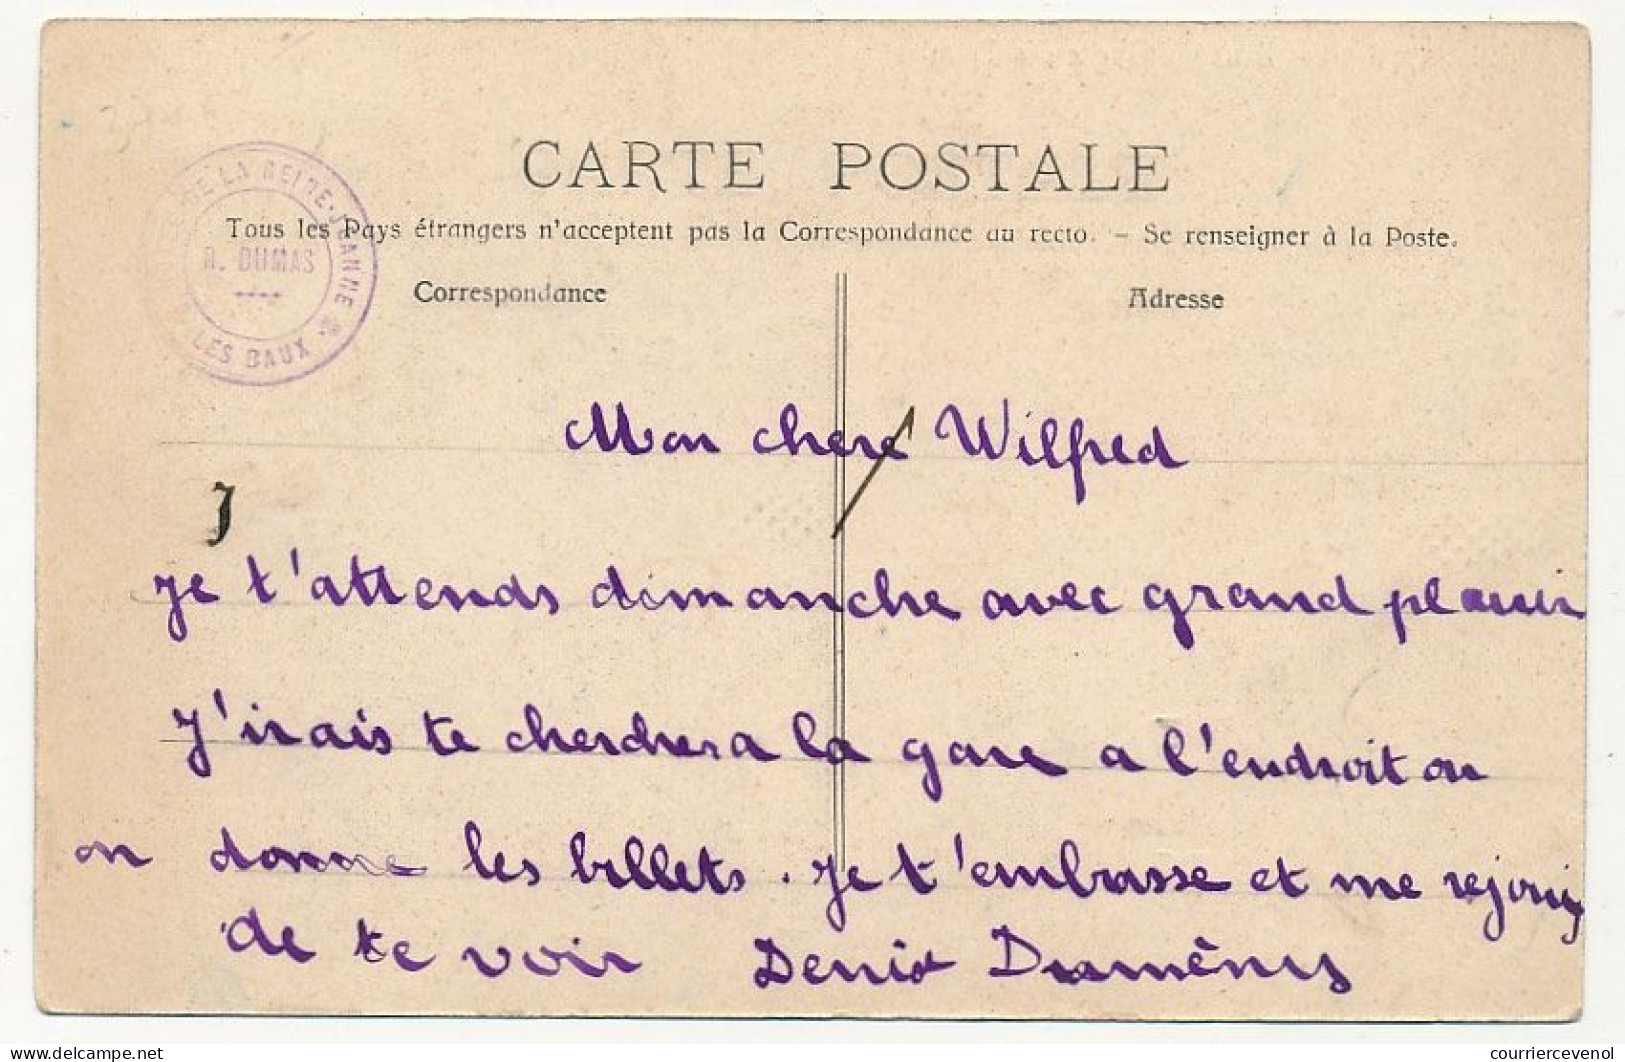 CARTE POSTALE
DE LA REINE-JEANNE
R. DUMAS
LES BAUX
Tous les Pays étrangers n'acceptent pas la Correspondance au recto. – Se renseigner à la Poste.
Correspondance
Adresse
Mon chere Wilfred
J
Je t'attends dimanche avec grand plaisir
J'irais te chercher a la gare a l'endroit ou
on donne les billets. Je t'embrasse et me rejouis
de te voir Denis
www.delcampe.net
courriercevenol